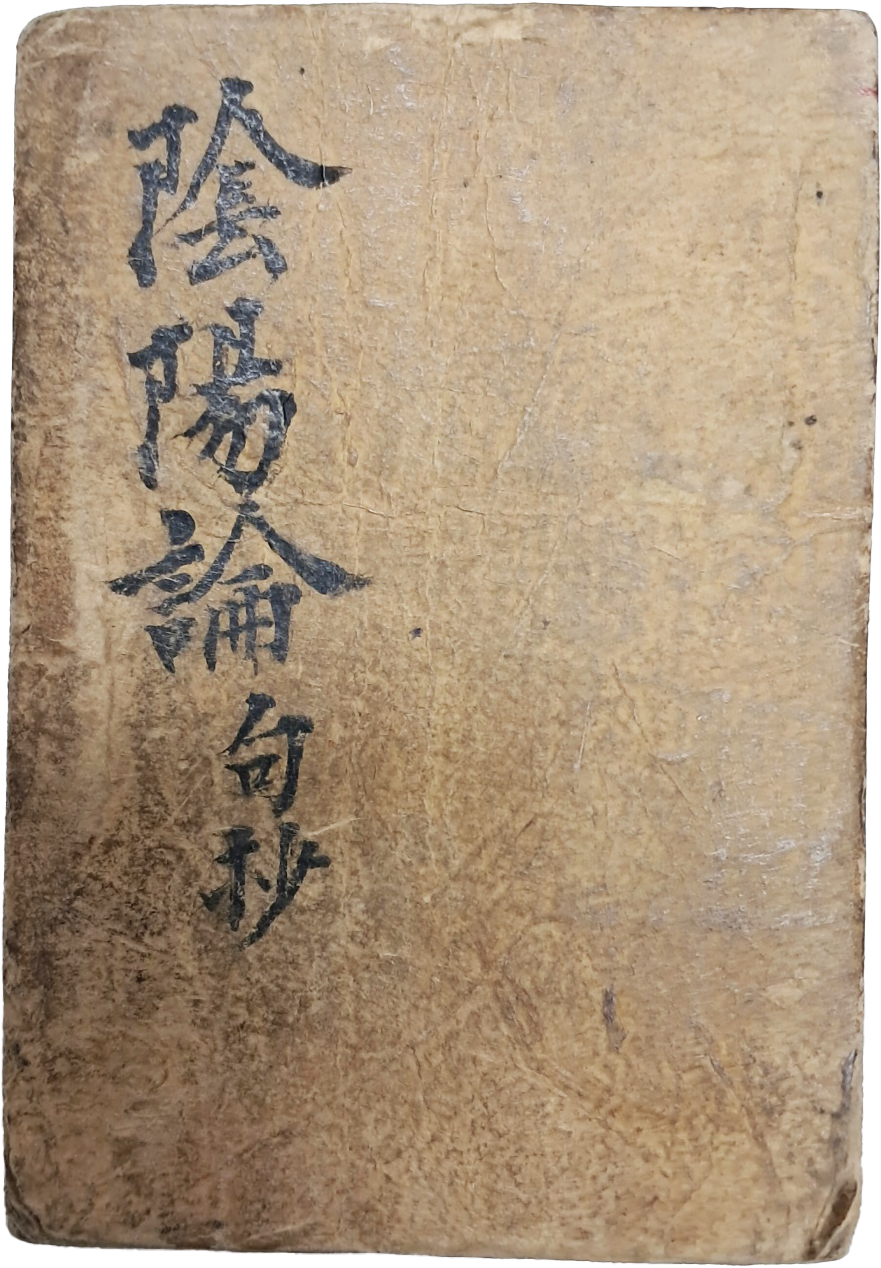 陰陽論句抄